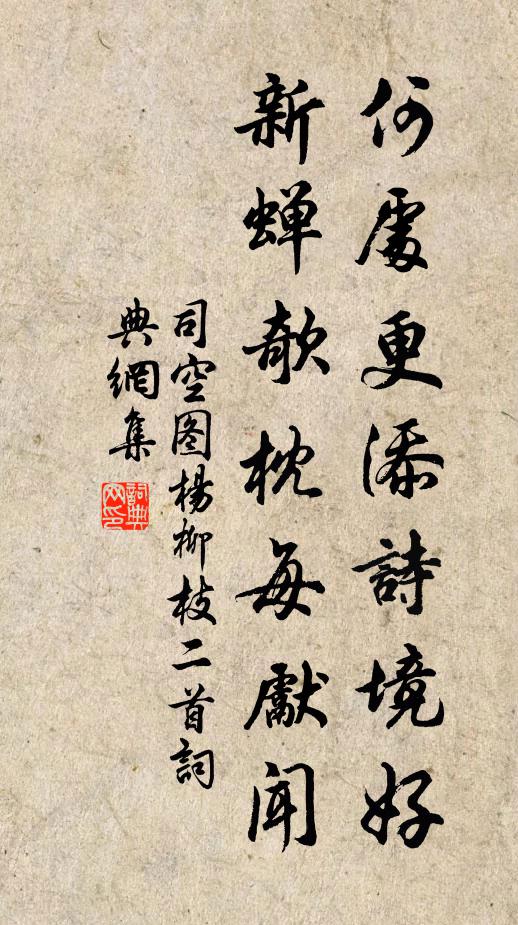 何處更添詩境好
新蝉欹枕每獻聞
司空图楊柳枝二首詞
典網集
詞典
网印